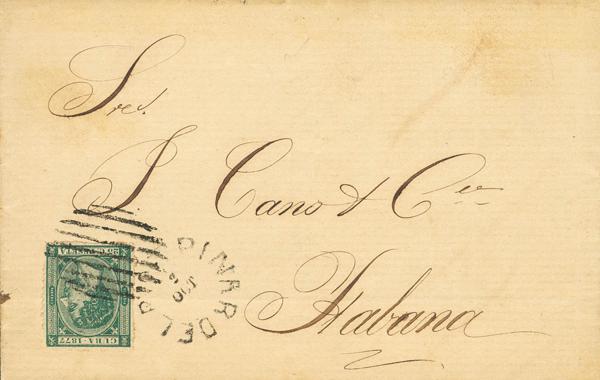 Sres.
J. Cano & Cia
Habana
PINAR DEL RIO
25 C. PESETA
CUBA - 1877